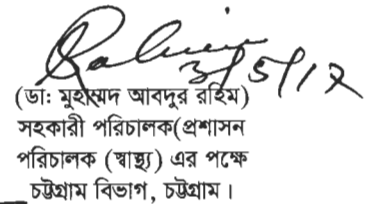 3/5/17
(ডাঃ মুহাম্মদ আবদুর রহিম)
সহকারী পরিচালক(প্রশাসন
পরিচালক (স্বাস্থ্য) এর পক্ষে
চট্টগ্রাম বিভাগ, চট্টগ্রাম।